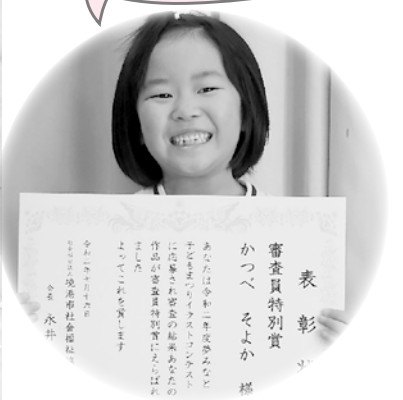 表彰状
審査員特別賞
かつべ そよか 様
あなたは令和二年度夢みなと
子どもまつりイラストコンテスト
に応募され審査の結果あなたの
作品が審査員特別賞にえらばれ
ました
よってこれを賞します
令和二年十月十六日
社会福祉法人 境港市社会福祉
会長 永井